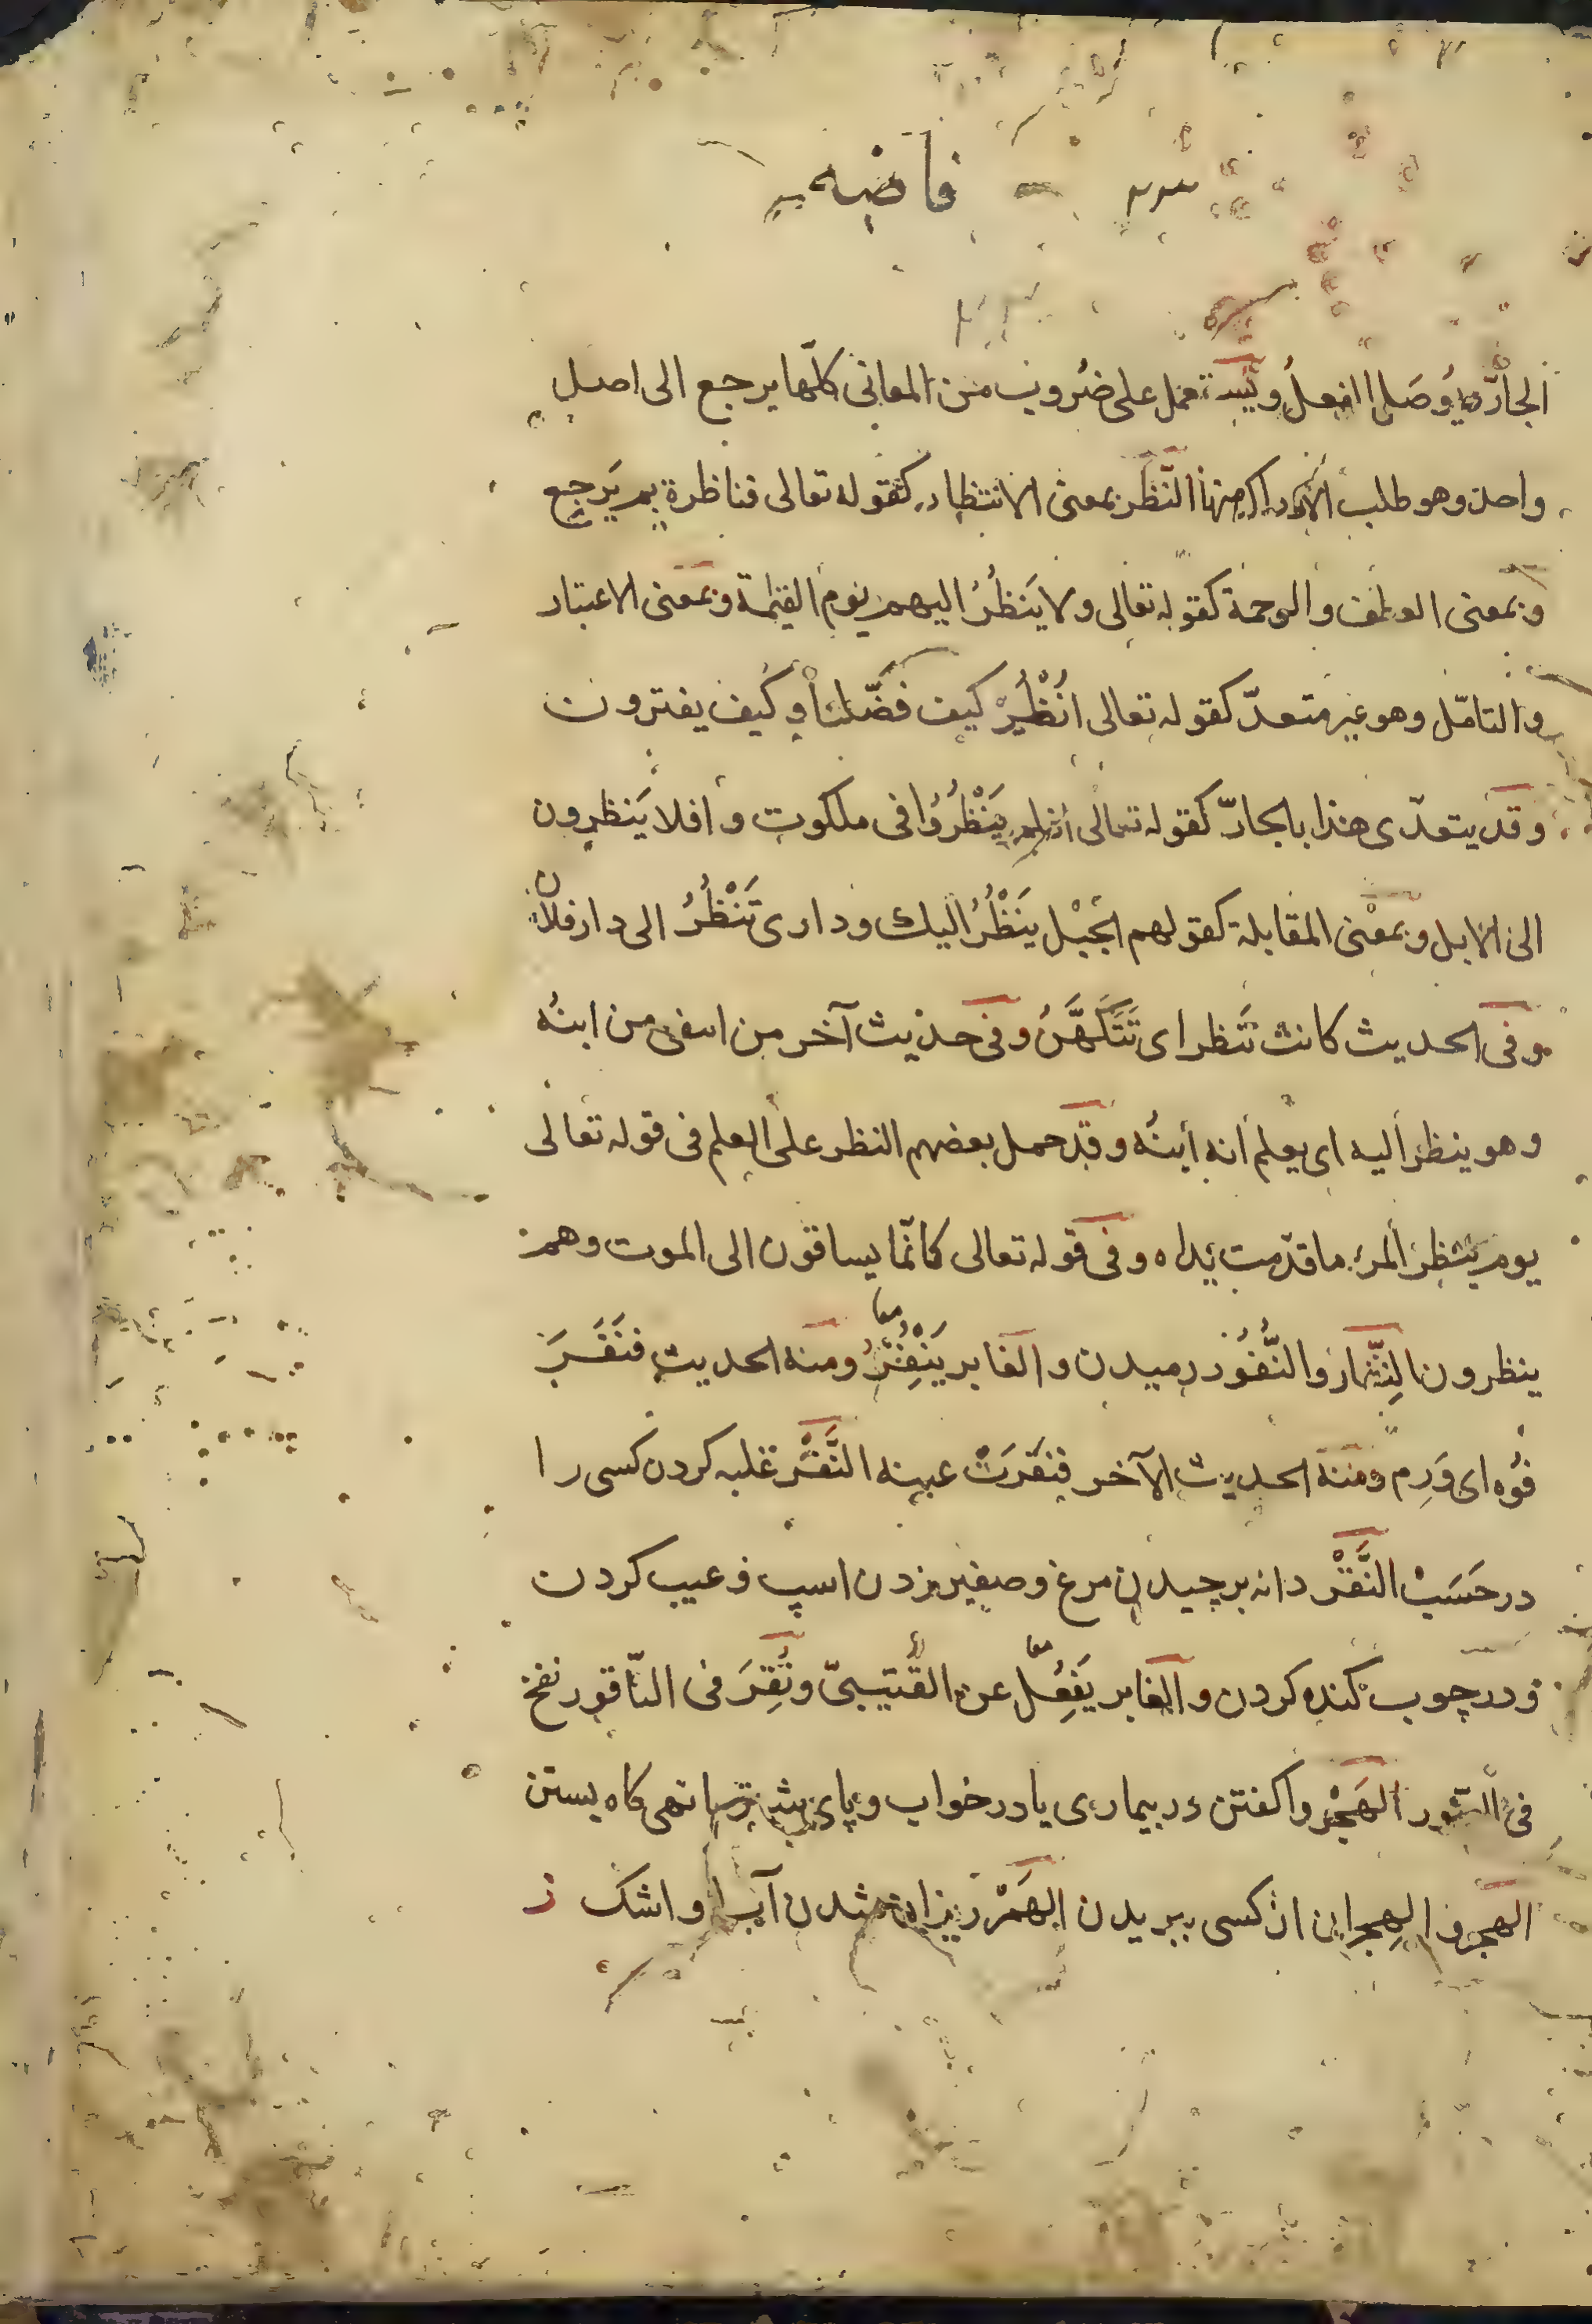 الجارّة يُوصَل الفعلُ ويستعمل على ضُروب من المعانى كلّها يرجع الى اصل
واحد وهو طلب الادراك منها النَّظر بمعنى الانتظار كقوله تعالى فناظرة بم يَرجع
وبمعنى العطف والرحمة كقوله تعالى ولا يَنظُرُ اليهم يوم القيٰمة وبمعنى الاعتبار
والتامّل وهو غير متعدّ كقوله تعالى انْظُرْ كيف فضّلنا و كيف يفترون
وقد يتعدّى هذا بالجارّ كقوله تعالى اولم يَنْظُرُوا فى ملكوت و افلا يَنظرون
الى الابل وبمعْنى المقابلة كقولهم الجَبل يَنْظُرُ اليك ودارى تَنْظُرُ الى دار فلان
وفى الحديث كانت تَنظر اى تَتَكَهَّنُ وفى حديث آخر من انتفى من ابنه
وهو ينظر اليه اى يعلم انه ابنُه وقد حمل بعضهم النظر على العلم فى قوله تعالى
يوم ينظر المرء ما قدّمت يداه وفى قوله تعالى كانّما يساقون الى الموت وهم
ينظرون النِّفار والنُّفُور رميدن والغابر يَنْفِرُ معا ومنه الحديث فنَفَرَ
فُوه اى وَرِم ومنه الحديث الآخر فنفَرَتْ عينه النَّفْر غلبه كردن كسى را
در حَسَب النَّقْر دانه برچيدن مرغ و صفير بزدن اسپ و عيب كردن
و در چوب كنده كردن و الغابر يَفعُل معا عن القُتيبىّ ونُقِرَ فى النّاقور نفخ
فى الصّور الهَجْر واكفتن در بيمارى يا در خواب و پاى كاه بستن
الهجر و الهِجران از كسى ببريدن الهَمْر ريزان شدن آب و اشك ز